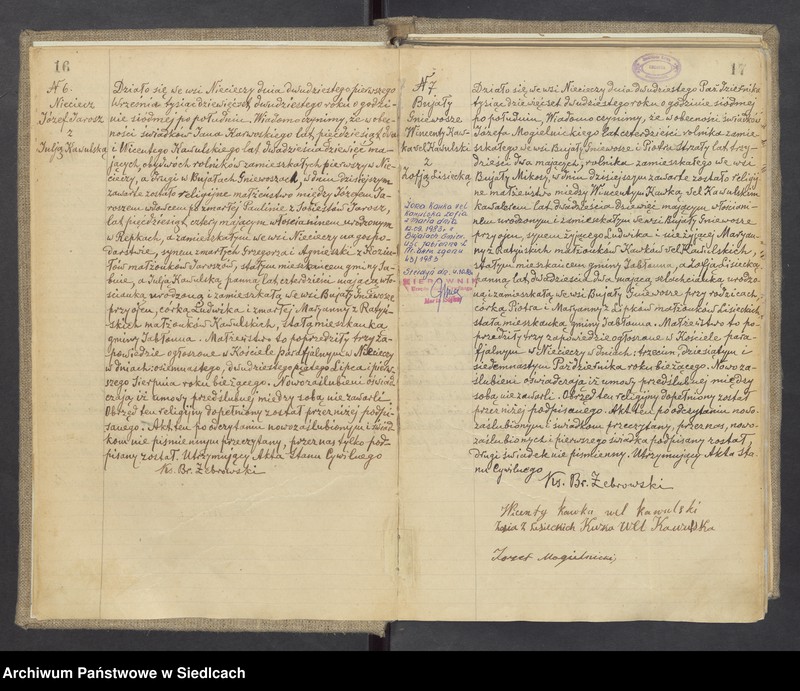 16
N 6.
Niecierz
Józef Jarosz
z
Julją Kawulską
Działo się we wsi Niecieczy dnia dwudziestego pierwszego
Września tysiąc dziewięćset dwudziestego roku o godzi-
nie siódmej po południu. Wiadomo czynimy, że w obec-
ności świadków Jana lat pięćdziesiąt dwa
i Wicentego Kawulskiego lat dwadzieścia dziewięć ma-
jących, obydwóch rolników zamieszkałych pierwszy w Nie-
cieczy, a drugi w Bujałach Gniewoszach, w dniu dzisiejszym
zawarte zostało religijne małżeństwo między Józefem Ja-
roszem wdowcem po zmarłej Paulinie z Jarosz,
lat pięćdziesiąt cztery mającym włościaninem urodzonym
w Repkach, a zamieszkałym we wsi Nieciecy na gospo-
darstwie, synem zmarłych Grzegorza i Agnieszki z
małżonków Jaroszów, stałym mieszkańcem gminy Sa-
bnie, a Julją Kawulską panną lat czterdzieści mającą, wło-
ścianką urodzoną i zamieszkałą we wsi Bujały Gniewosze
przy ojcu, córką Ludwika i zmarłej Maryanny z Ratyń-
skich małżonków Kawulskich, stałą mieszkanką
gminy Jabłonna. Małżeństwo to poprzedziły trzy za-
powiedzie ogłoszone w Kościele parafjalnym w Nieciecy
w dniach: osiemnastego, dwudziestego piątego Lipca i pierw-
szego Sierpnia roku bieżącego. Nowozaślubieni oświad-
czają iż umowy przedślubnej między sobą nie zawarli.
Obrzęd ten religijny dopełniony został przez niżej podpi-
sanego. Akt ten po odczytaniu nowozaślubionym i świad-
kom nie piśmiennym przeczytany, przez nas tylko pod-
pisany został. Utrzymujący Akta Stanu Cywilnego
Ks. Br. Żebrowski
17
N 7.
Bujały
Gniewosze
Wincenty Kaw-
ka vel Kawulski
z
Zofją Lisiecką
Działo się we wsi Nieciecy dnia dwudziestego Paździednika
tysiąc dziewięćset dwudziestego roku o godzinie siódmej
po południu, Wiadomo czynimy, że w obecności świadków
Józefa Mogielnickiego lat czterdzieści rolnika zamie-
szkałego we wsi Bujały Gniewosze i Piotra Strzały lat trzy-
dzieści dwa mających, rolnika zamieszkałego we wsi
Bujały Mikosy, w dniu dzisiejszym zawarte zostało religij-
ne małżeństwo między Wincentym Kawką vel Kawulskim
kawalerem lat dwadzieścia dziewięć mającym, włościani-
nem urodzonym i zamieszkałym we wsi Bujały Gniewosze
przy ojcu, synem żyjącego Ludwika i nieżyjącej Maryan-
ny z Ratyńskich małżonków Kawków vel Kawulskich,
stałym mieszkańcem gminy Jabłonna, a Zofją Lisiecką
panną lat dwadzieścia dwa mającą, szlachcianką urodzo-
ną i zamieszkałą we wsi Bujały Gniewosze przy rodzicach,
córką Piotra i Maryanny z Lipków małżonków Lisieckich,
stałą mieszkanką gminy Jabłonna. Małżeństwo to po-
przedziły trzy zapowiedzie ogłoszone w Kościele para-
fjalnym w Nieciecy w dniach: trzecim, dziesiątym i
siedemnastym Października roku bieżącego. Nowoza-
ślubieni oświadczają iż umowy przedślubnej między
sobą nie zawarli. Obrzęd ten religijny dopełniony został
przez niżej podpisanego. Akt ten po odczytaniu nowo-
zaślubionym i świadkom przeczytany, przez nas, nowo-
zaślubionych i pierwszego świadka podpisany został
drugi świadek nie piśmienny. Utrzymujący Akta Sta-
nu Cywilnego
Ks. Br. Żebrowski
Wicenty kawka wel kawulski
Zofia z Lisieckich Kawka Well Kawulska
Józef Mogielnicki
Żona Kawka vel
Kawulska Zofia
zmarła dnia
1983 r.
KIEROWNIK
Archiwum Państwowe w Siedlcach